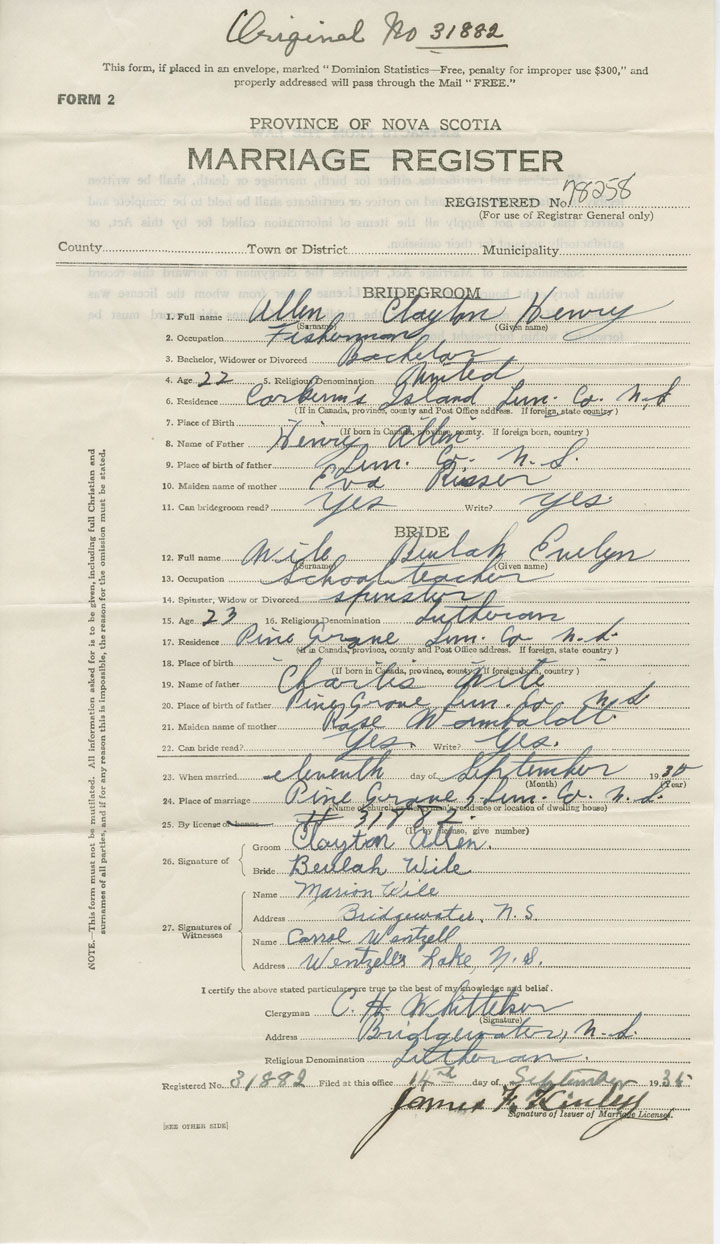 Original No 31882
This form, if placed in an envelope, marked "Dominion Statistics—Free, penalty for improper use $300," and
properly addressed will pass through the Mail "FREE."
FORM 2
PROVINCE OF NOVA SCOTIA
MARRIAGE REGISTER
REGISTERED No. 78258
(For use of Registrar General only)
County Town or District Municipality
BRIDEGROOM
1. Full name Allen Clayton Henry
(Surname) (Given name)
2. Occupation Fisherman
3. Bachelor, Widower or Divorced Bachelor
4. Age 22 5. Religious Denomination United
6. Residence Corkum's Island Lun. Co. N.S
(If in Canada, province, county and Post Office address. If foreign, state country)
7. Place of Birth " " " "
(If born in Canada, province, county. If foreign born, country)
8. Name of Father Henry Allen
9. Place of birth of father Lun. Co. N. S.
10. Maiden name of mother Eva Risser
11. Can bridegroom read? Yes Write? Yes
BRIDE
12. Full name Wile Beulah Evelyn
(Surname) (Given name)
13. Occupation School teacher
14. Spinster, Widow or Divorced Spinster
15. Age 23 16. Religious Denomination Lutheran
17. Residence Pine Grove Lun. Co N.S.
(If in Canada, province, county and Post Office address. If foreign, state country)
18. Place of birth " " " "
(If born in Canada, province, county. If foreign born, country)
19. Name of father Charles Wile
20. Place of birth of father Pine Grove Lun. Co N S
21. Maiden name of mother Rose Wamboldt
22. Can bride read? Yes. Write? Yes.
23. When married eleventh day of September 1935
(Month) (Year)
24. Place of marriage Pine Grove, Lun. Co. N.S.
(Name of church or clergyman's residence or location of dwelling house)
25. By license or banns # 31882.
(If by license, give number)
26. Signature of
Groom Clayton Allen.
Bride Beulah Wile
27. Signatures of Witnesses
Name Marion Wile
Address Bridgewater, N.S.
Name Carrol Wentzell
Address Wentzells Lake, N.S.
I certify the above stated particulars are true to the best of my knowledge and belief.
Clergyman C. H. Whitteker
(Signature)
Address Bridgewater, N.S.
Religious Denomination Lutheran.
Registered No. 31882 Filed at this office 14th day of September 1935
James F. Kinley
Signature of Issuer of Marriage Licenses.
[SEE OTHER SIDE]
NOTE.—This form must not be mutilated. All information asked for is to be given, including full Christian and
surnames of all parties, and if for any reason this is impossible, the reason for the omission must be stated.